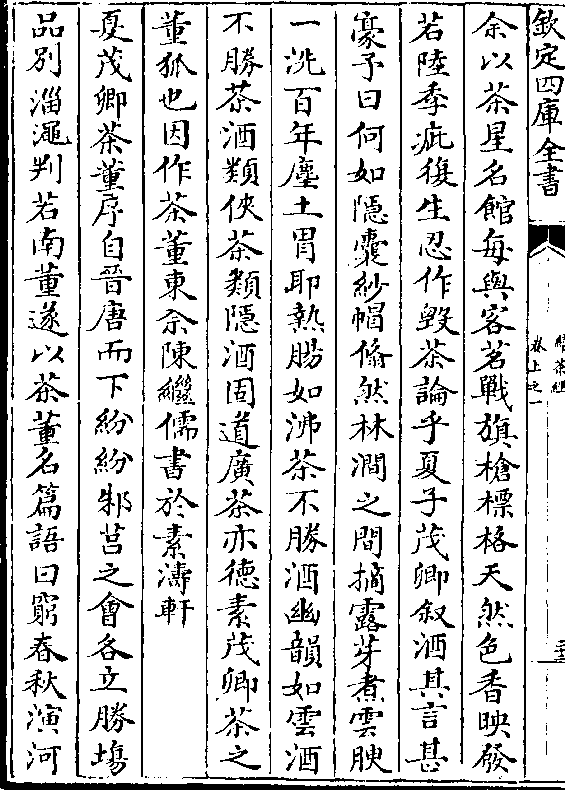 欽定四庫全書
續茶經
卷上之一
余以茶星名館每與客茗戰旗槍標格天然色香映發
若陸季疵復生忍作毀茶論乎夏子茂卿叙酒其言甚
豪予曰何如隱囊紗帽翛然林澗之間摘露芽煮雲腴
一洗百年塵土胃耶熱腸如沸茶不勝酒幽韻如雲酒
不勝茶酒類俠茶類隱酒固道廣茶亦德素茂卿茶之
董狐也因作茶董東佘陳繼儒書於素濤軒
夏茂卿茶董序自晉唐而下紛紛邾莒之會各立勝塲
品別淄澠判若南董遂以茶董名篇語曰窮春秋演河